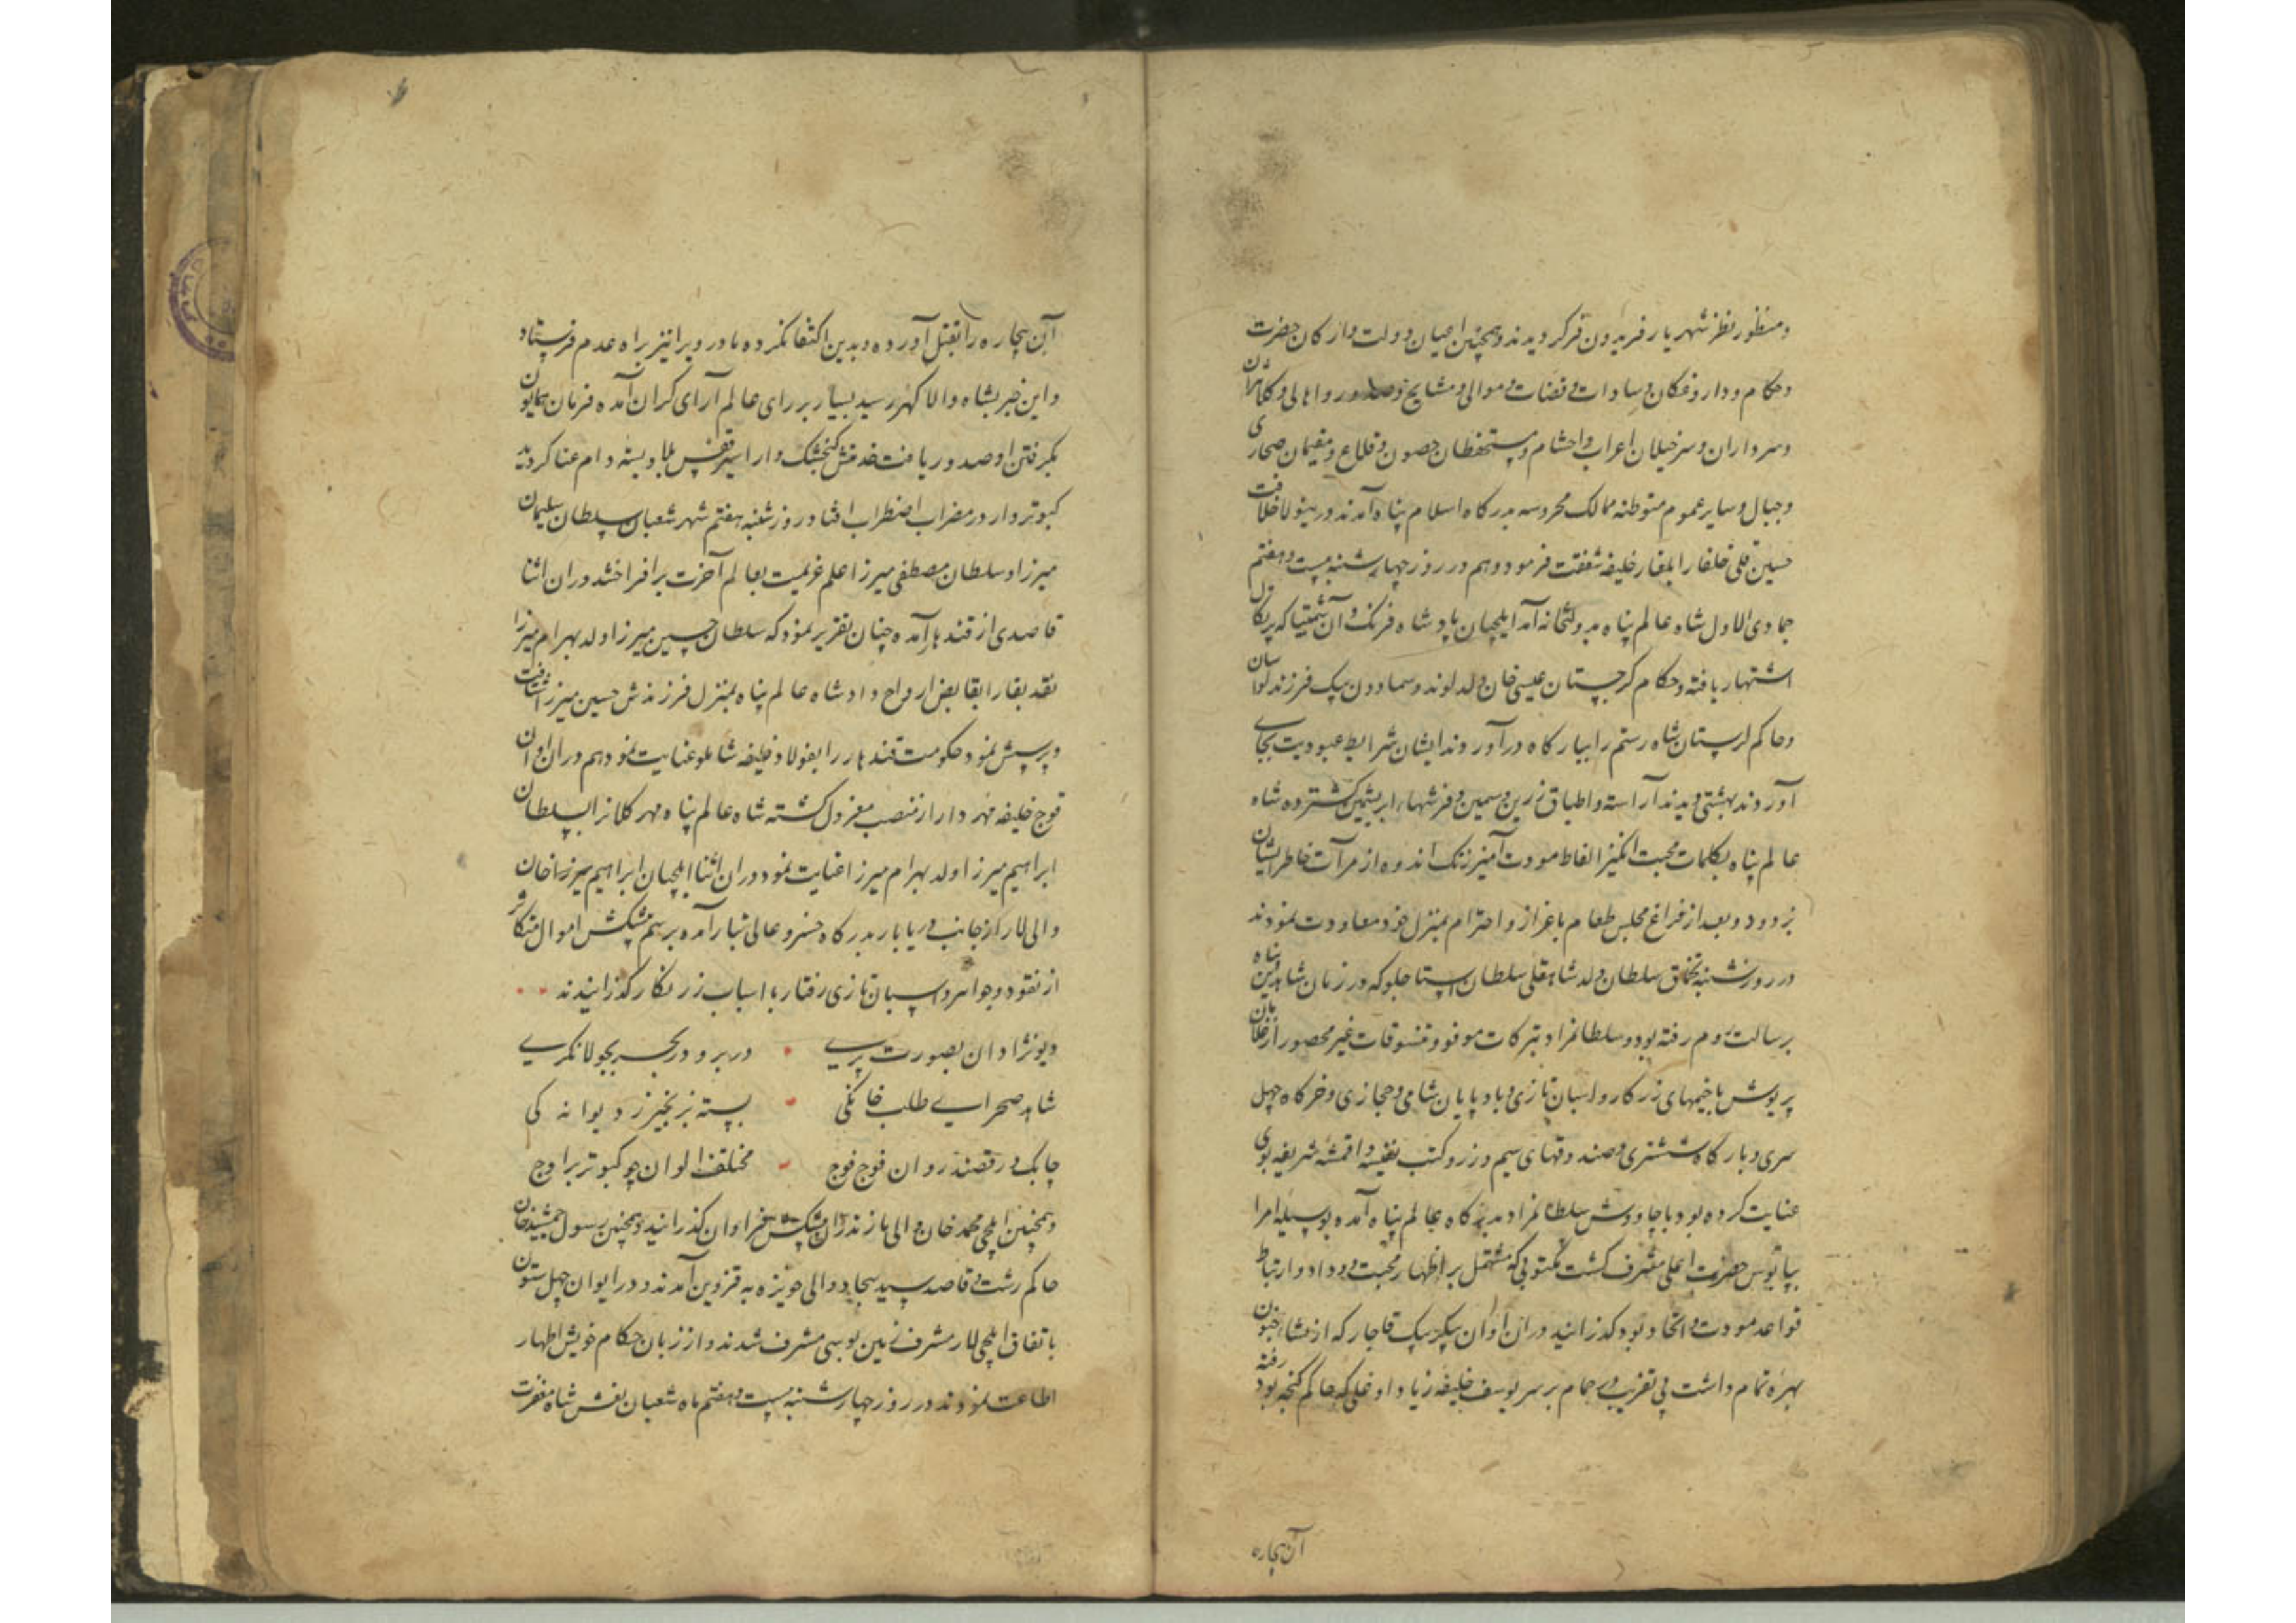 و منظور نظر شهریار فریدون فر گردیدند و همچنین اعیان دولت و ارکان حضرت
و حکام و داروغگان و سادات و قضات و موالی و مشایخ و صدور و اهالی و کلانتران
و سرداران و سرخیلان اعراب و احشام و مستحفظان حصون و قلاع و مقیمان صحاری
و جبال و سایر عموم متوطنه ممالک محروسه بدرگاه اسلام پناه آمدند درینولا خلافت
حسین قلی خلفا را بلغار خلیفه شفقت فرمود و هم در روز چهارشنبه بیست و هفتم
جمادی الاول شاه عالم پناه بدولتخانه آمد ایلچیان پادشاه فرنک و آن که پرتکال
اشتهار یافته و حکام کرجستان عیسی خان ولد لوند و سماوون بیک فرزند لوارسان
و حاکم لرستان شاه رستم را ببارگاه درآوردند ایشان شرایط عبودیت بجای
آوردند بهشتی دیدند آراسته و اطباق زرین و سیمین و فرشهاء ابریشمین کسترده شاه
عالم پناه بکلمات محبت انگیز الفاظ مودت آمیز زنک اندوه از مرآت خاطر ایشان
بزدود و بعد از فراغ مجلس طعام باعزاز و احترام بمنزل خود معاودت نمودند
در روز شنبه تخماق سلطان ولد شاهقلی سلطان استاجلو که در زمان شاه دین پناه
برسالت روم رفته بود و سلطانمراد تبرکات موفور و تنسوقات غیر محصور از غلامان
پریوش با خیمهای زرکار و اسبان تازی و بادپایان شامی و حجازی و خرگاه چهل
سری و بارگاه ششتری و صندوقهای سیم و زر و کتب نفیسه و اقمشه شریفه بوی
عنایت کرده بود با چاووش سلطانمراد بدرگاه عالم پناه آمده بوسیله امرا
بپایبوس حضرت اعلی مشرف کشت مکتوبی که مشتمل بر اظهار محبت و وداد و ارتباط
قواعد مودت و اتحاد بود گذرانید در ان اوان پیکر بیک قاجار که از نشاء جنون
بهره تمام داشت بی تقریب در حمام بر سر یوسف خلیفه زیاد اوغلی که حاکم کنجه بود رفته
آن بیچاره
آن بیچاره را بقتل آورده و بدین اکتفا نکرده مادر ویرا نیز براه عدم فرستاد
و این خبر بشاه والا گهر رسید بسیار بر رای عالم آرای گران آمده فرمان همایون
بگرفتن او صدور یافت کنجشک وار اسیر قفس بلا و بسته دام عنا کردید
کبوتر وار در مضراب اضطراب افتاد روز شنبه هفتم شهر شعبان سلطان سلیمان
میرزا و سلطان مصطفی میرزا علم عزیمت بعالم آخرت برافراختند در ان اثنا
قاصدی از قندهار آمده چنان تقریر نمود که سلطان حسین میرزا ولد بهرام میرزا
نقد بقا را بقابض ارواح داد شاه عالم پناه بمنزل فرزندش حسین میرزا شتافت
و پرسش نمود حکومت قندهار را بفولاد خلیفه شاملو عنایت نمود هم در ان اوان
قوج خلیفه مهردار از منصب معزول گشته شاه عالم پناه مهر کلانرا بسلطان
ابراهیم میرزا ولد بهرام میرزا عنایت نمود در ان اثنا ایلچیان ابراهیم میرزا خان
والی لار از جانب دریابار بدرگاه خسرو عالی تبار آمده برسم پیشکش اموال متکاثر
از نقود و جواهر و اسبان تازی رفتار با اسباب زرنگار گذرانیدند
دیو نژادان بصورت پری در بر و در بحر بجولانگری
شاهد صحرایی طلب خانگی بسته بزنجیر ز دیوانه گی
چابک و رقصند روان فوج فوج مختلف الوان چو کبوتر براوج
و همچنین ایلچی محمد خان والی مازندران پیشکش فراوان گذرانید و همچنین رسول جمشید خان
حاکم رشت و قاصد سید سجاد والی حویزه به قزوین آمدند و در ایوان چهل ستون
باتفاق ایلچی لار مشرف زمین بوسی مشرف شدند و از زبان حکام خویش اظهار
اطاعت نمودند در روز چهارشنبه بیست و هفتم ماه شعبان نعش شاه مغفرت